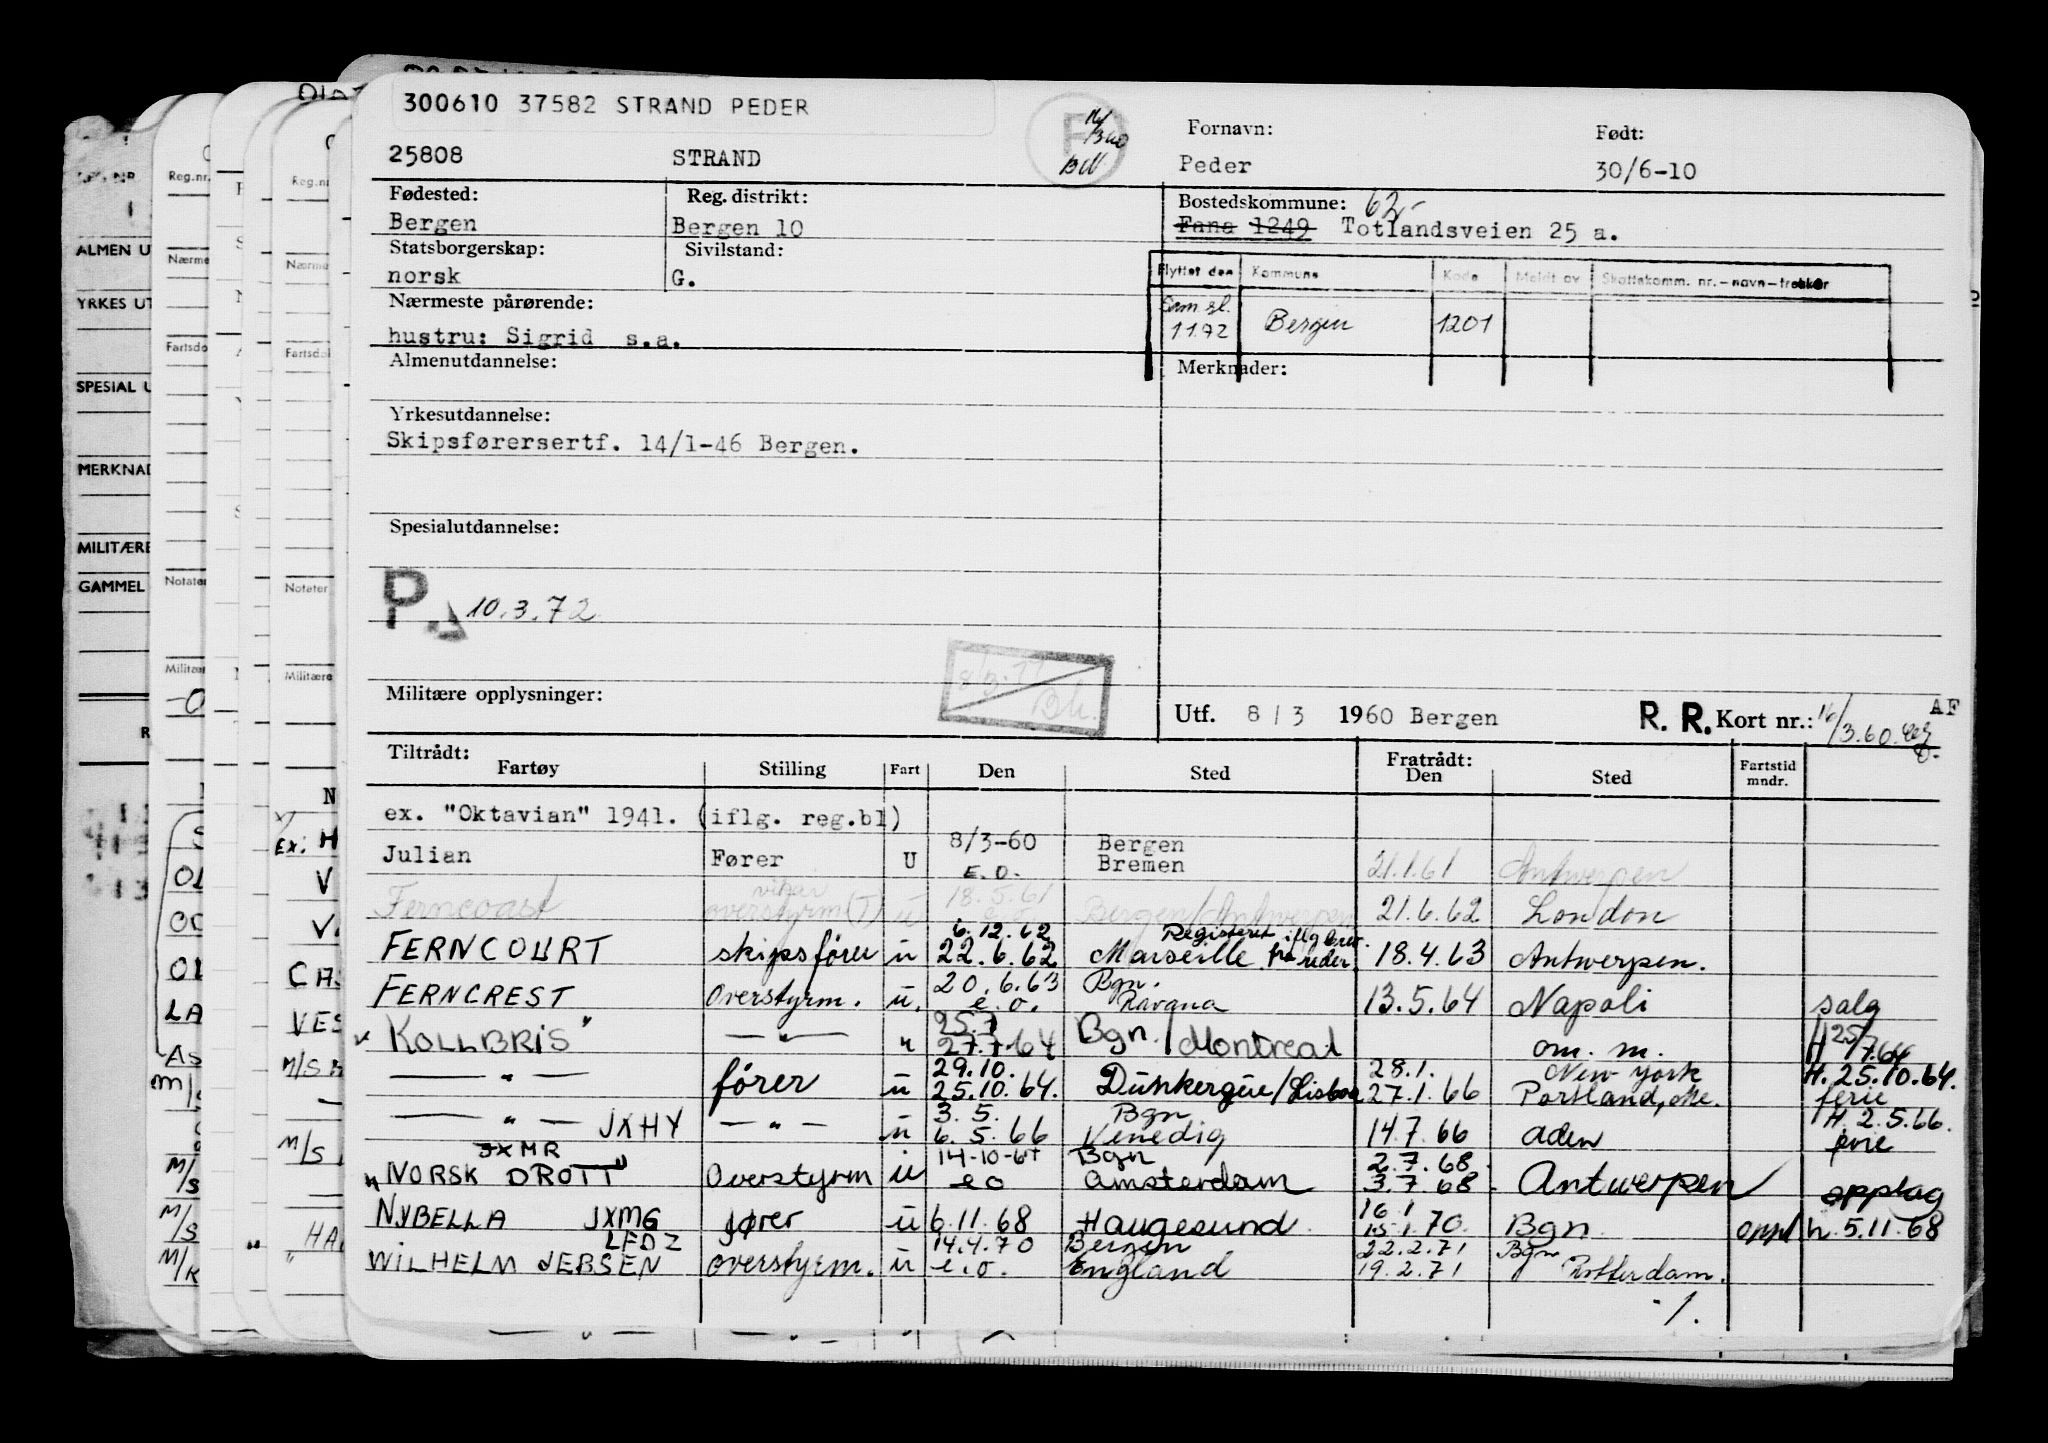 300610 37582 STRAND PEDER
25808 STRAND
Fornavn: Født:
Peder 30/6-10
Fødested: Reg. distrikt: Bostedskommune: 62,-
Bergen Bergen 10 Fana 1249 Totlandsveien 25 a.
Statsborgerskap: Sivilstand:
norsk G.
Flyttet den Kommune Kode Meldt av Skattekomm. nr.-navn-trekker
1172 Bergen 1201
Nærmeste pårørende:
hustru: Sigrid s.a.
Almenutdannelse: Merknader:
Yrkesutdannelse:
Skipsførersertf. 14/1-46 Bergen.
Spesialutdannelse:
P. 10.3.72
Militære opplysninger:
Utf. 8/3 1960 Bergen R. R. Kort nr.: 16/3.60. AF
Tiltrådt: Fratrådt:
Fartøy Stilling Fart Den Sted Den Sted Fartstid mndr.
ex. "Oktavian" 1941. (iflg. reg.bl)
8/3-60 Bergen
Julian Fører U E.O. Bremen 21.1.61 Antwerpen
vikar 18.5.61
Ferncoast overstyrm(T) u e.o. Bergen/Antwerpen 21.6.62 London
6.12.62 Registrert iflg brev
FERNCOURT skipsfører u 22.6.62 Marseille fra reder. 18.4.63 Antwerpen.
20.6.63 Bgn.
FERNCREST Overstyrm. u. e.o. Ravana 13.5.64 Napoli salg
25.7 H 25/7.64
" KOLLBRIS" — " — " 27.7.64 Bgn./Montreal om. m.
29.10. 28.1. New York H. 25.10.64.
— " — fører u 25.10.64. Dunkerque/Lisboa 27.1.66 Portland, ferie
3.5. Bgn H. 2.5.66.
— " — JXHY — " — u 6.5.66 Venedig 14.7.66 Aden ferie
JXMR 14-10-67 Bgn 2.7.68
"NORSK DROTT" Overstyrm u eo Amsterdam 3.7.68. Antwerpen opplag
16.1
NYBELLA JXMG fører u 6.11.68 Haugesund. 15.1.70. Bgn oppl h. 5.11.68
LFDZ 14.4.70 Bergen 22.2.71 Bgn
WILHELM JEBSEN overstyrm. u e.o. England 19.2.71 Rotterdam.
-/.
Reg.nr.
ALMEN U
Nærme
YRKES UT
Fartsdo
SPESIAL U
MERKNAD
MILITÆRE
GAMMEL
Notater
Militær
Reg.nr
Nærme
Fartsdo
Notater
Militære